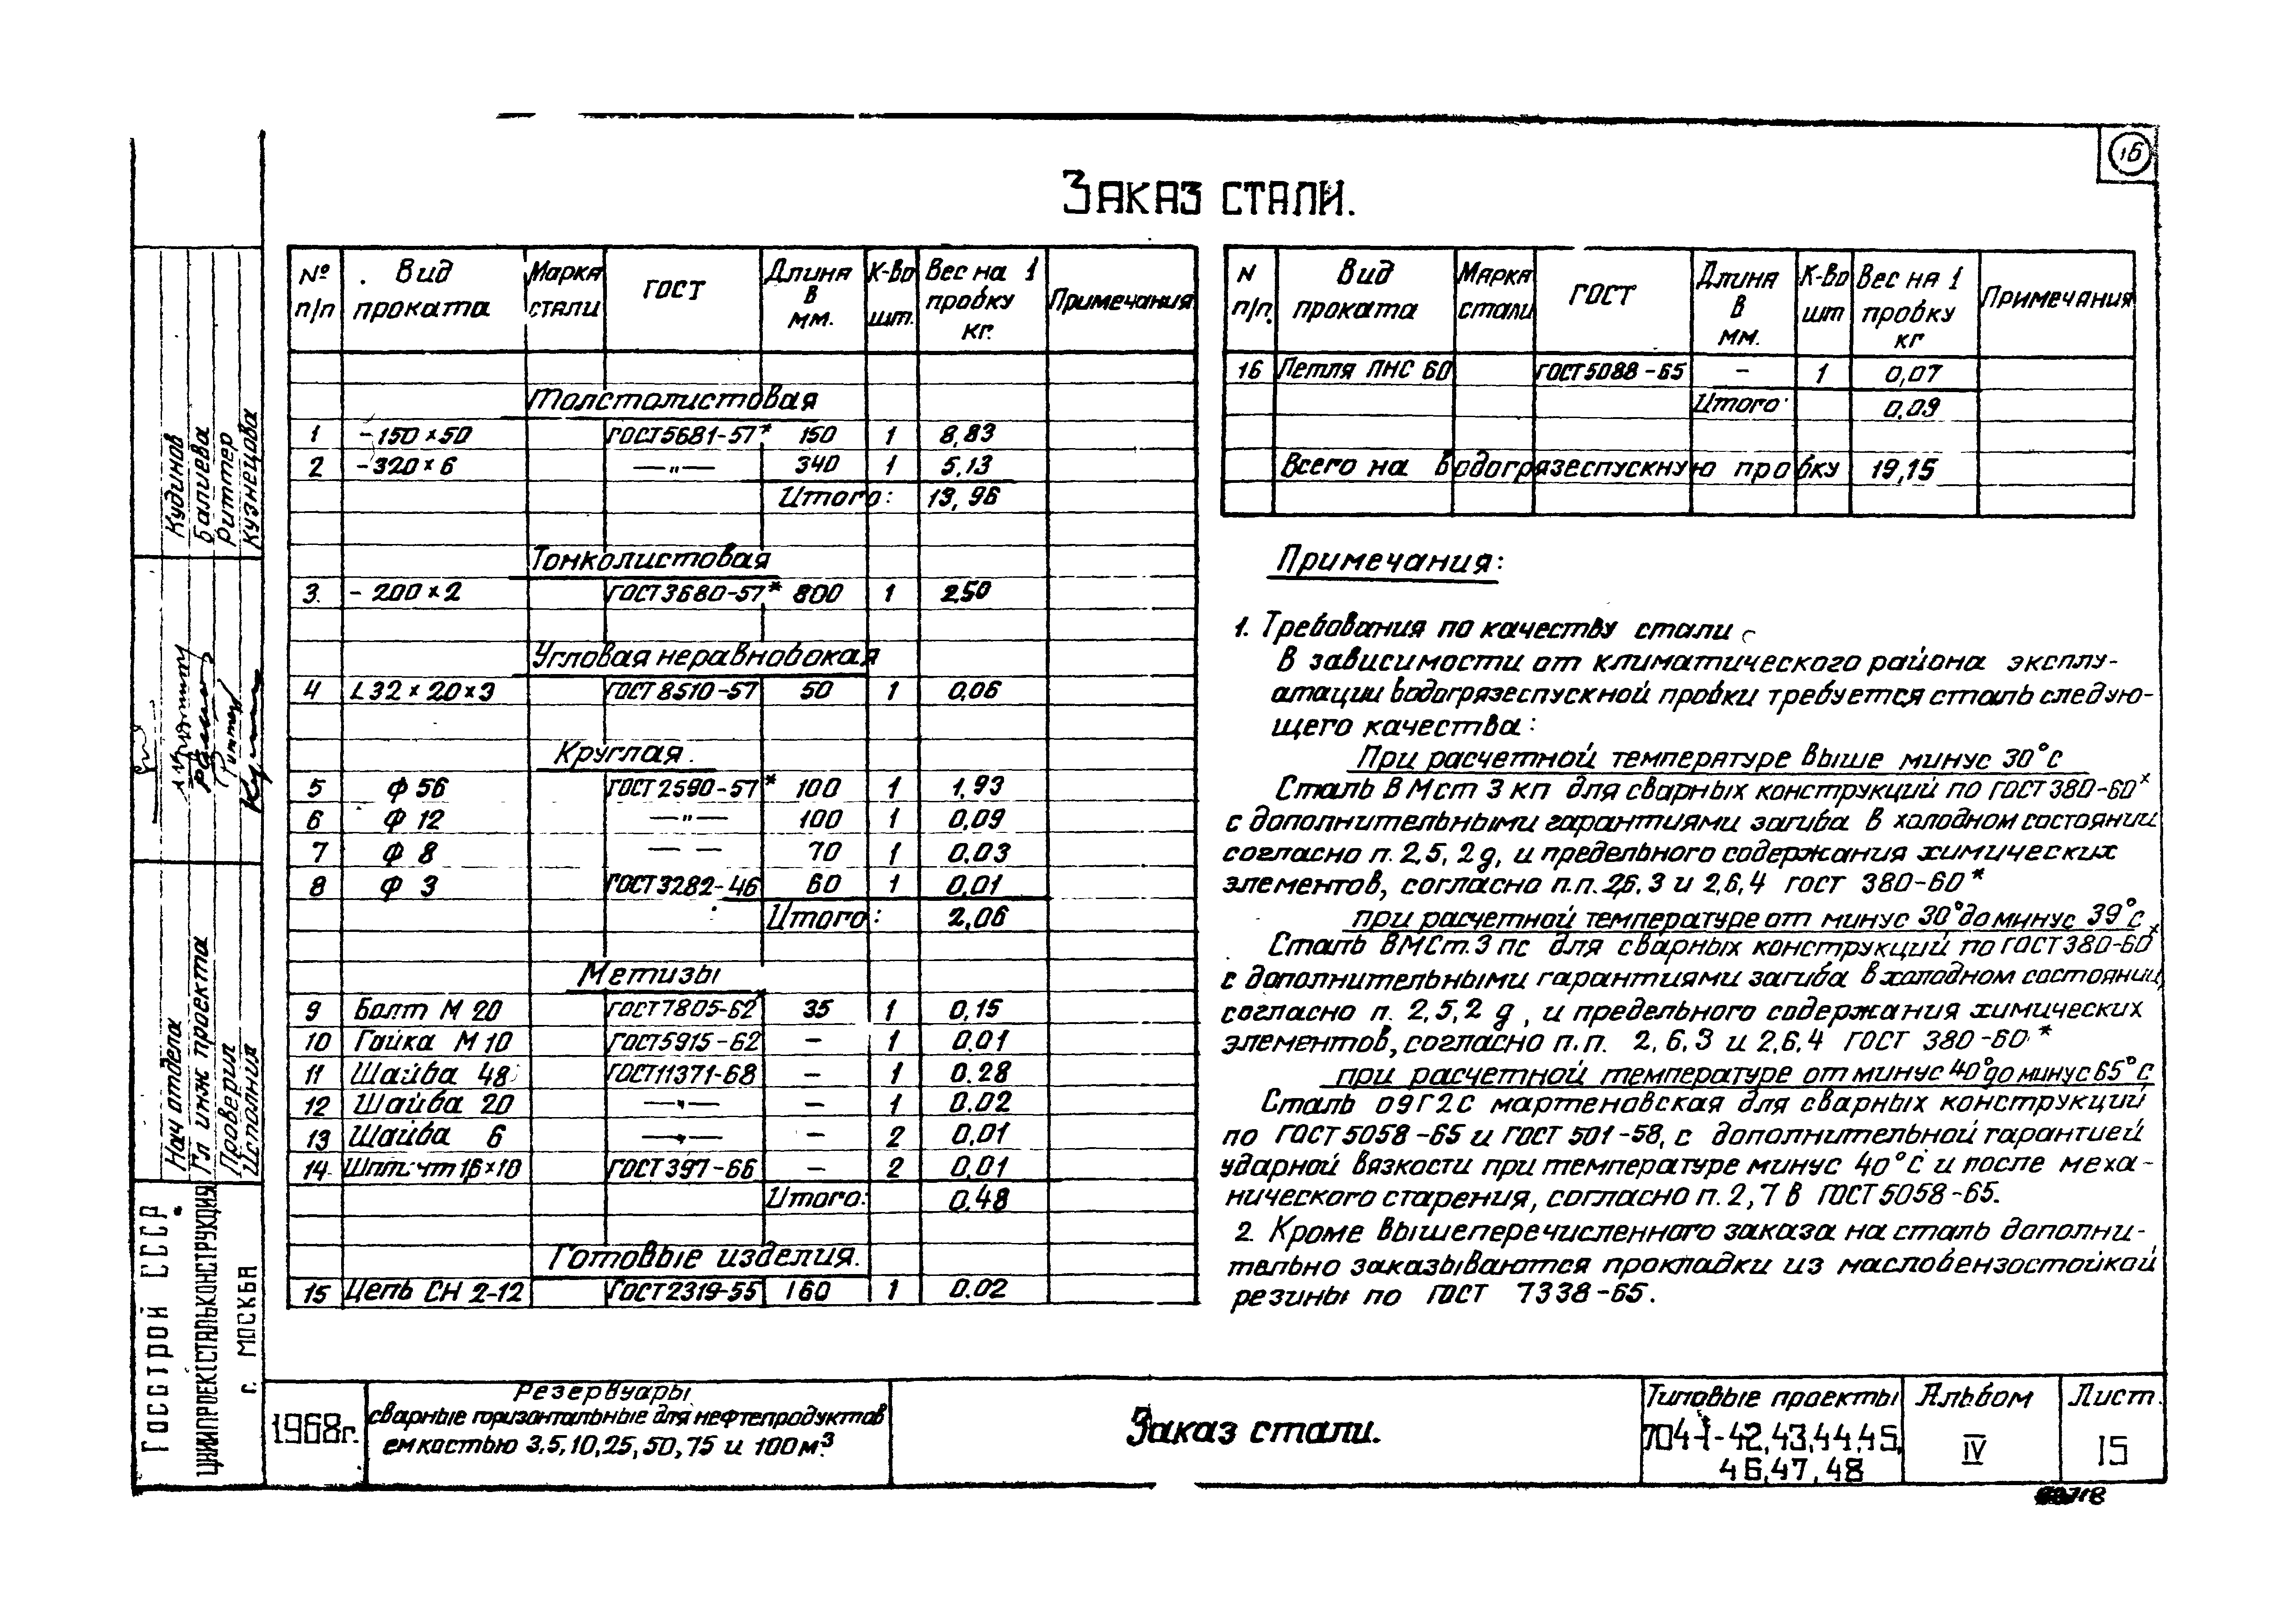 16
Заказ стали.
№ п/п Вид проката Марка стали ГОСТ Длина в мм. К-во шт. Вес на 1 пробку кг. Примечания
Толстолистовая
1 -150×50 ГОСТ5681-57* 150 1 8,83
2 -320×6 —"— 340 1 5,13
Итого: 13,96
Тонколистовая
3. - 200×2 ГОСТ3680-57* 800 1 2,50
Угловая неравнобокая
4 L32×20×3 ГОСТ8510-57 50 1 0,06
Круглая.
5 Ф 56 ГОСТ2590-57* 100 1 1,93
6 Ф 12 —"— 100 1 0,09
7 Ф 8 — — 70 1 0,03
8 Ф 3 ГОСТ3282-46 60 1 0,01
Итого: 2,06
Метизы
9 Болт М 20 ГОСТ7805-62* 35 1 0,15
10 Гайка М 10 ГОСТ5915-62 — 1 0,01
11 Шайба 48 ГОСТ11371-68 — 1 0.28
12 Шайба 20 —"— — 1 0.02
13 Шайба 6 —"— — 2 0,01
14 Шплинт 16×10 ГОСТ397-66 — 2 0,01
Итого: 0,48
Готовые изделия.
15 Цепь СН 2-12 ГОСТ2319-55 160 1 0.02
N п/п. Вид проката Марка стали ГОСТ Длина в мм. К-во шт Вес на 1 пробку кг Примечания
16 Петля ПНС 60 ГОСТ5088-65 — 1 0,07
Итого: 0,09
Всего на водогрязеспускную пробку 19,15
Примечания:
1. Требования по качеству стали
В зависимости от климатического района эксплу-
атации водогрязеспускной пробки требуется сталь следую-
щего качества:
При расчетной температуре выше минус 30°с
Сталь В Мст 3 кп для сварных конструкций по ГОСТ380-60*
с дополнительными гарантиями загиба в холодном состоянии
согласно п. 2,5, 2д, и предельного содержания химических
элементов, согласно п.п. 2,6,3 и 2,6,4 ГОСТ 380-60*
при расчетной температуре от минус 30° до минус 39°с
Сталь ВМСт.3 пс для сварных конструкций по ГОСТ380-60*
с дополнительными гарантиями загиба в холодном состоянии,
согласно п. 2,5,2 д, и предельного содержания химических
элементов, согласно п.п. 2,6,3 и 2,6,4 ГОСТ 380-60*
при расчетной температуре от минус 40° до минус 65°с
Сталь 09Г2С мартеновская для сварных конструкций
по ГОСТ5058-65 и ГОСТ 501-58, с дополнительной гарантией
ударной вязкости при температуре минус 40°с и после меха-
нического старения, согласно п. 2,7 в ГОСТ5058-65.
2. Кроме вышеперечисленного заказа на сталь дополни-
тельно заказываются прокладки из маслобензостойкой
резины по ГОСТ 7338-65.
Госстрой СССР
ЦНИИПРОЕКТСТАЛЬКОНСТРУКЦИЯ
г. МОСКВА
Нач отдела Кудинов
Гл инж проекта Балиева
Проверил Риттер
Исполнил Кузнецова
1968г.
Резервуары
сварные горизонтальные для нефтепродуктов
емкостью 3,5,10,25,50,75 и 100м³
Заказ стали.
Типовые проекты
704-1-42,43,44,45,
46,47,48
Альбом
IV
Лист.
15